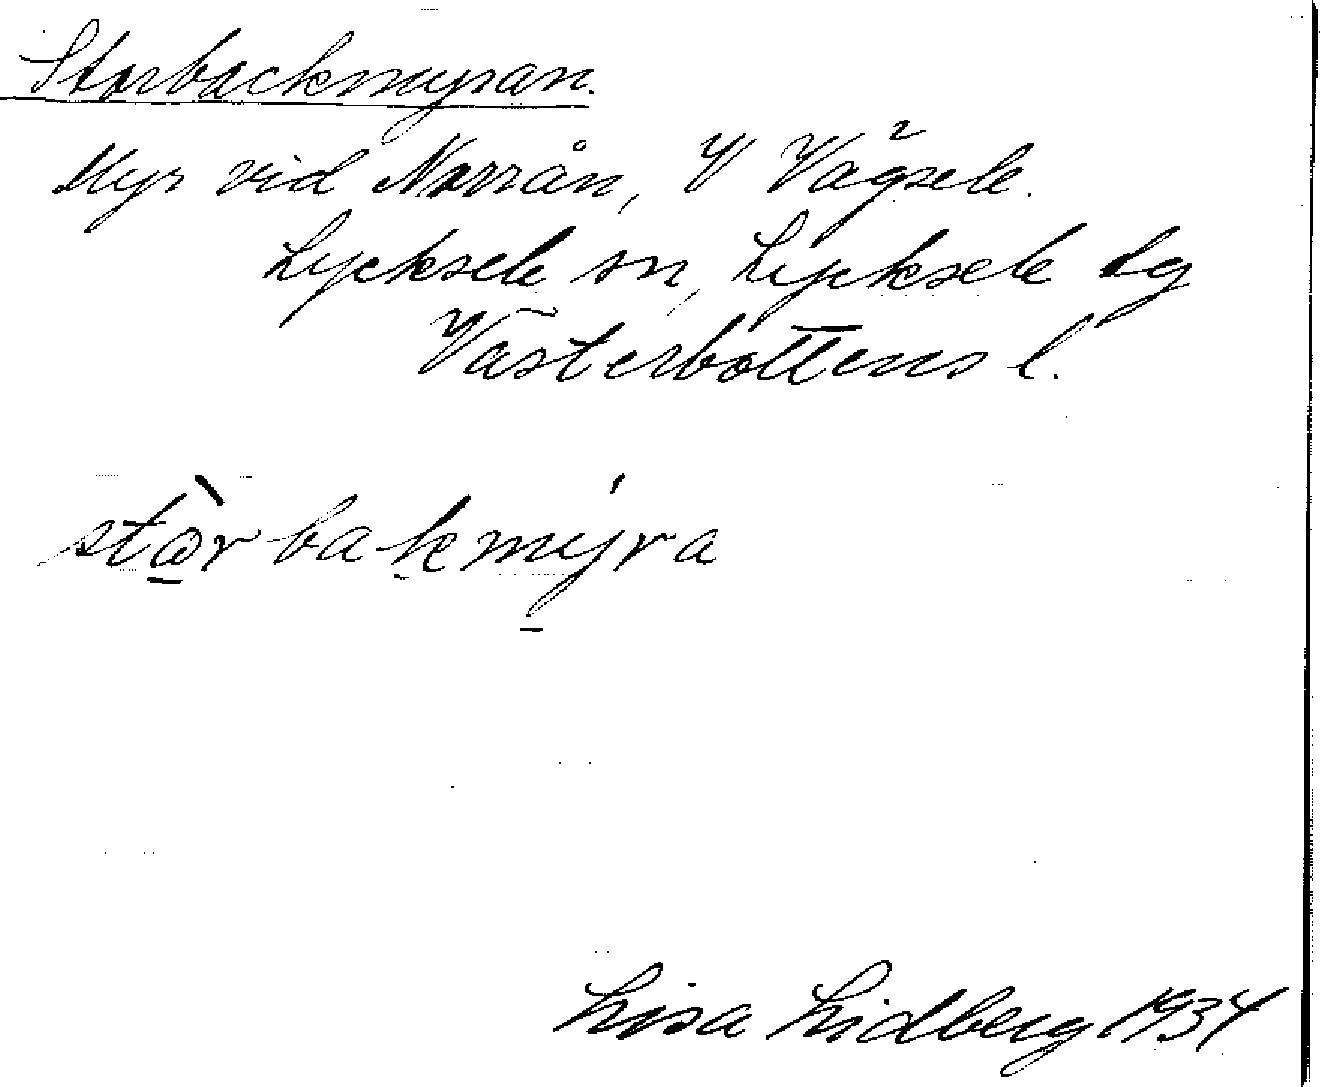 Storbackmyran.
Myr vid Norrån, V Vägsele.
Lycksele sn, Lycksele lg
Västerbottens l.
stòrbakmýra
Lisa Lidberg 1934